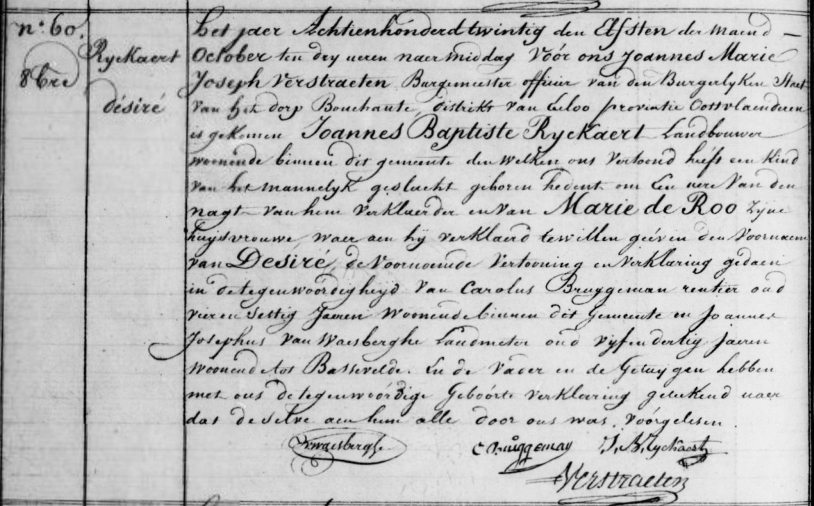 n.º 60.
8bre
Ryckaert
désiré
Het jaer Achtienhonderd twintig den Elfsten der maend —
October ten dry ueren naer middag Vóór ons Joannes Marie
Joseph Verstraeten Burgemeester officier van den Burgerlyken Staet
van het dorp Bouchaute, distrikt van Eecloo provintie Oostvlaenderen
is gekomen Joannes Baptiste Ryckaert Landbouwer
woonende binnen dit gemeente den welken ons vertoond heeft een kind
van het mannelyk geslacht geboren hedent om Een uere van den
nagt van hem verklaerder en van Marie de Roo zyne
huysvrouwe, waer aen hy verklaerd te willen geéven den voornaem
van Desiré, de voornoemde vertooning en verklaring gedaen
in de tegenwoordigheyd van Carolus Bruggeman rentier oud
vier en sestig Jaeren woonende binnen dit gemeente en Joannes
Josephus van Waesberghe Landmeter oud vyf en dertig jaeren
woonende tot Bassevelde. En de vader en de getuygen hebben
met ons de tegenwoórdige Geboórte verklaring geteekend naer
dat de selve aen hun alle door ons was vóórgelesen.
Jvwaesberghe C Bruggeman J. B. Ryckaert
Verstraeten